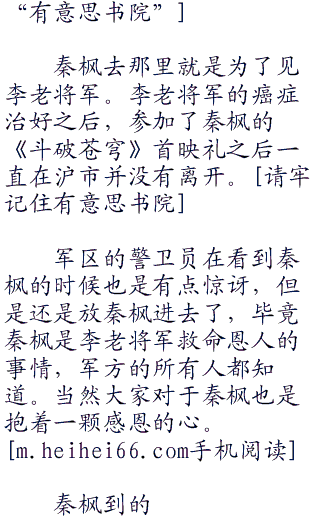 “有意思书院”]
秦枫去那里就是为了见
李老将军。李老将军的癌症
治好之后，参加了秦枫的
《斗破苍穹》首映礼之后一
直在沪市并没有离开。[请牢
记住有意思书院]
军区的警卫员在看到秦
枫的时候也是有点惊讶，但
是还是放秦枫进去了，毕竟
秦枫是李老将军救命恩人的
事情，军方的所有人都知
道。当然大家对于秦枫也是
抱着一颗感恩的心。
[m.heihei66.com手机阅读]
秦枫到的